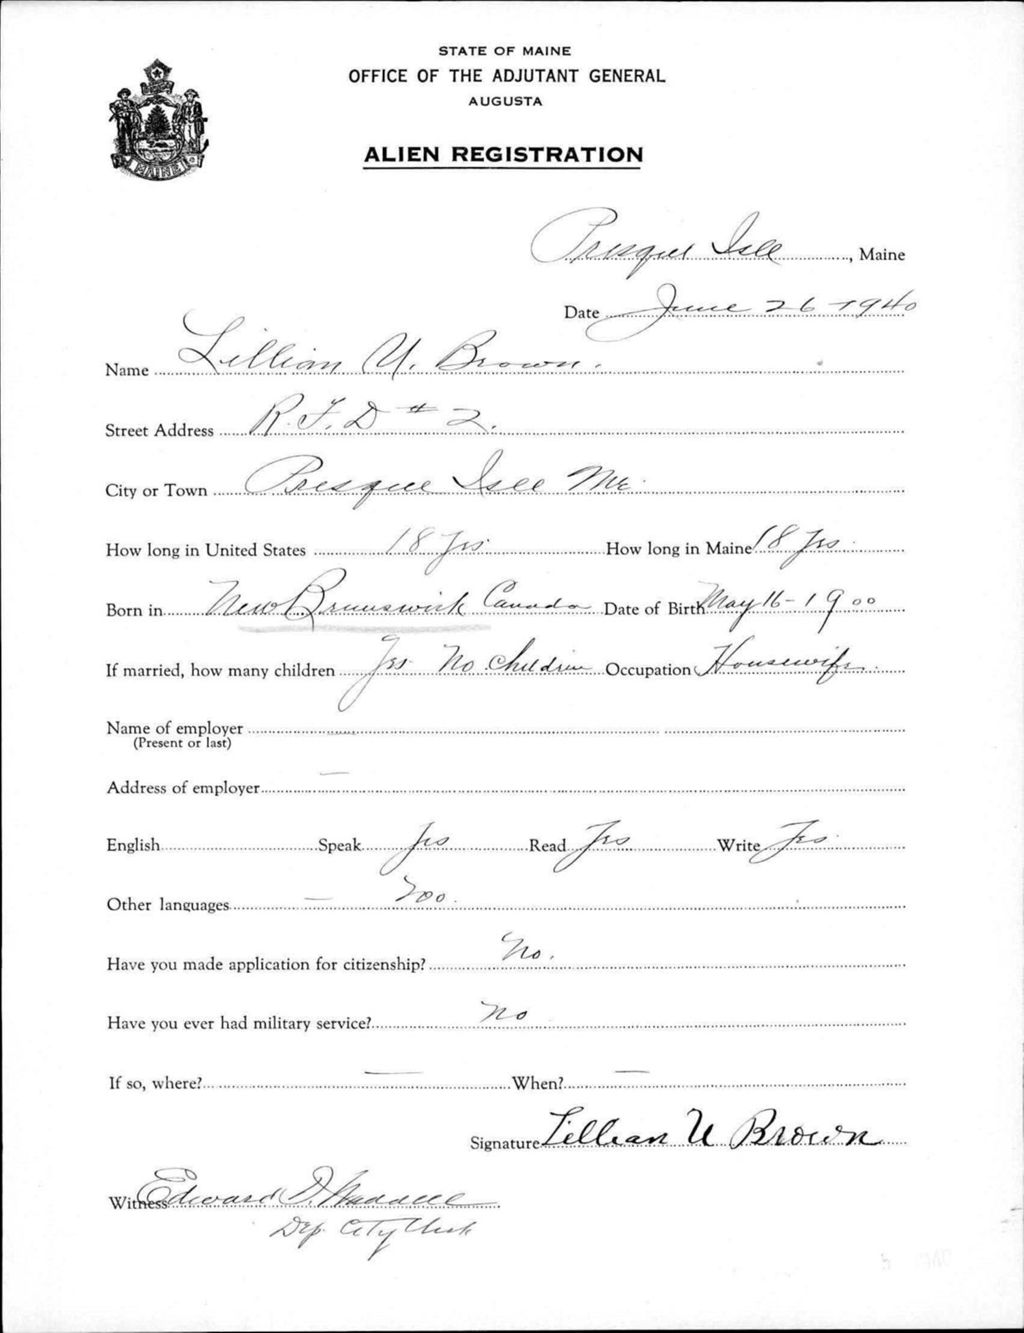 STATE OF MAINE
OFFICE OF THE ADJUTANT GENERAL
AUGUSTA
ALIEN REGISTRATION
MAINE
Presque Isle, Maine
Date June 26-1940
Name Lillian U. Brown.
Street Address R.F.D # 2.
City or Town Presque Isle Me.
How long in United States 18 Yrs. How long in Maine 18 Yrs.
Born in New Brunswick Canada Date of Birth May 16-1900
If married, how many children Yes No Children Occupation Housewife.
Name of employer
(Present or last)
Address of employer —
English Speak Yes Read Yes Write Yes.
Other languages — No.
Have you made application for citizenship? No.
Have you ever had military service? No
If so, where? — When? —
Signature Lillian U Brown
Witness Edward D.
Dep. City Clerk